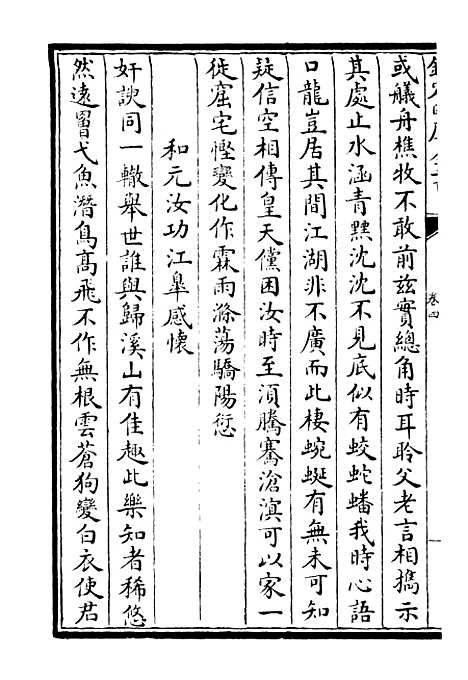 卷四
或艤舟樵牧不敢前兹實總角時耳聆父老言相攜示
其處止水涵青黑沈沈不見底似有蛟蛇蟠我時心語
口龍豈居其間江湖非不廣而此棲蜿蜒有無未可知
疑信空相傳皇天儻困汝時至須騰騫滄溟可以家一
徙窟宅慳變化作霖雨滌蕩驕陽愆
和元汝功江臯感懷
奸諛同一轍舉世誰與歸溪山有佳趣此樂知者稀悠
然遠罾弋魚潛鳥高飛不作無根雲蒼狗變白衣使君